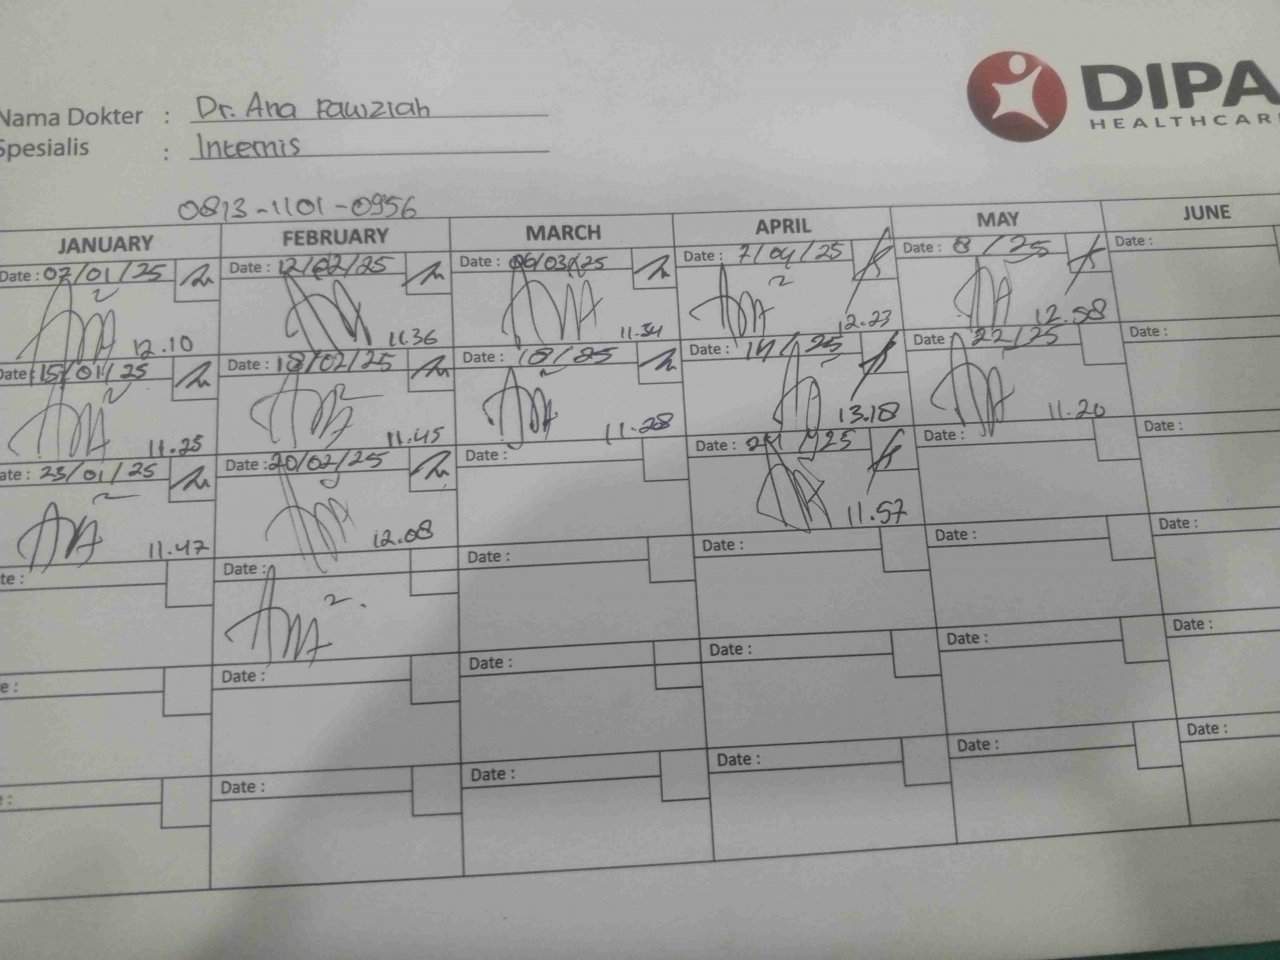 DIPA
HEALTHCAR
Nama Dokter : Dr. Ana Fauziah
Spesialis : Internis
0813-1101-0956
JANUARY FEBRUARY MARCH APRIL MAY JUNE
Date : 07/01/25 Date : 12/02/25 Date : 06/03/25 Date : 7/04/25 Date : 8/25 Date :
12.10 11.36 11.34 12.23 12.58
Date : 15/01/25 Date : 18/02/25 Date : 18/25 Date : 17/25 Date : 22/25 Date :
11.25 11.45 11.28 13.18 11.20
ate : 23/01/25 Date : 20/02/25 Date : Date : 25 Date : Date :
11.47 12.08 11.57
te : Date : Date : Date : Date : Date :
e : Date : Date : Date : Date : Date :
: Date : Date : Date : Date : Date :